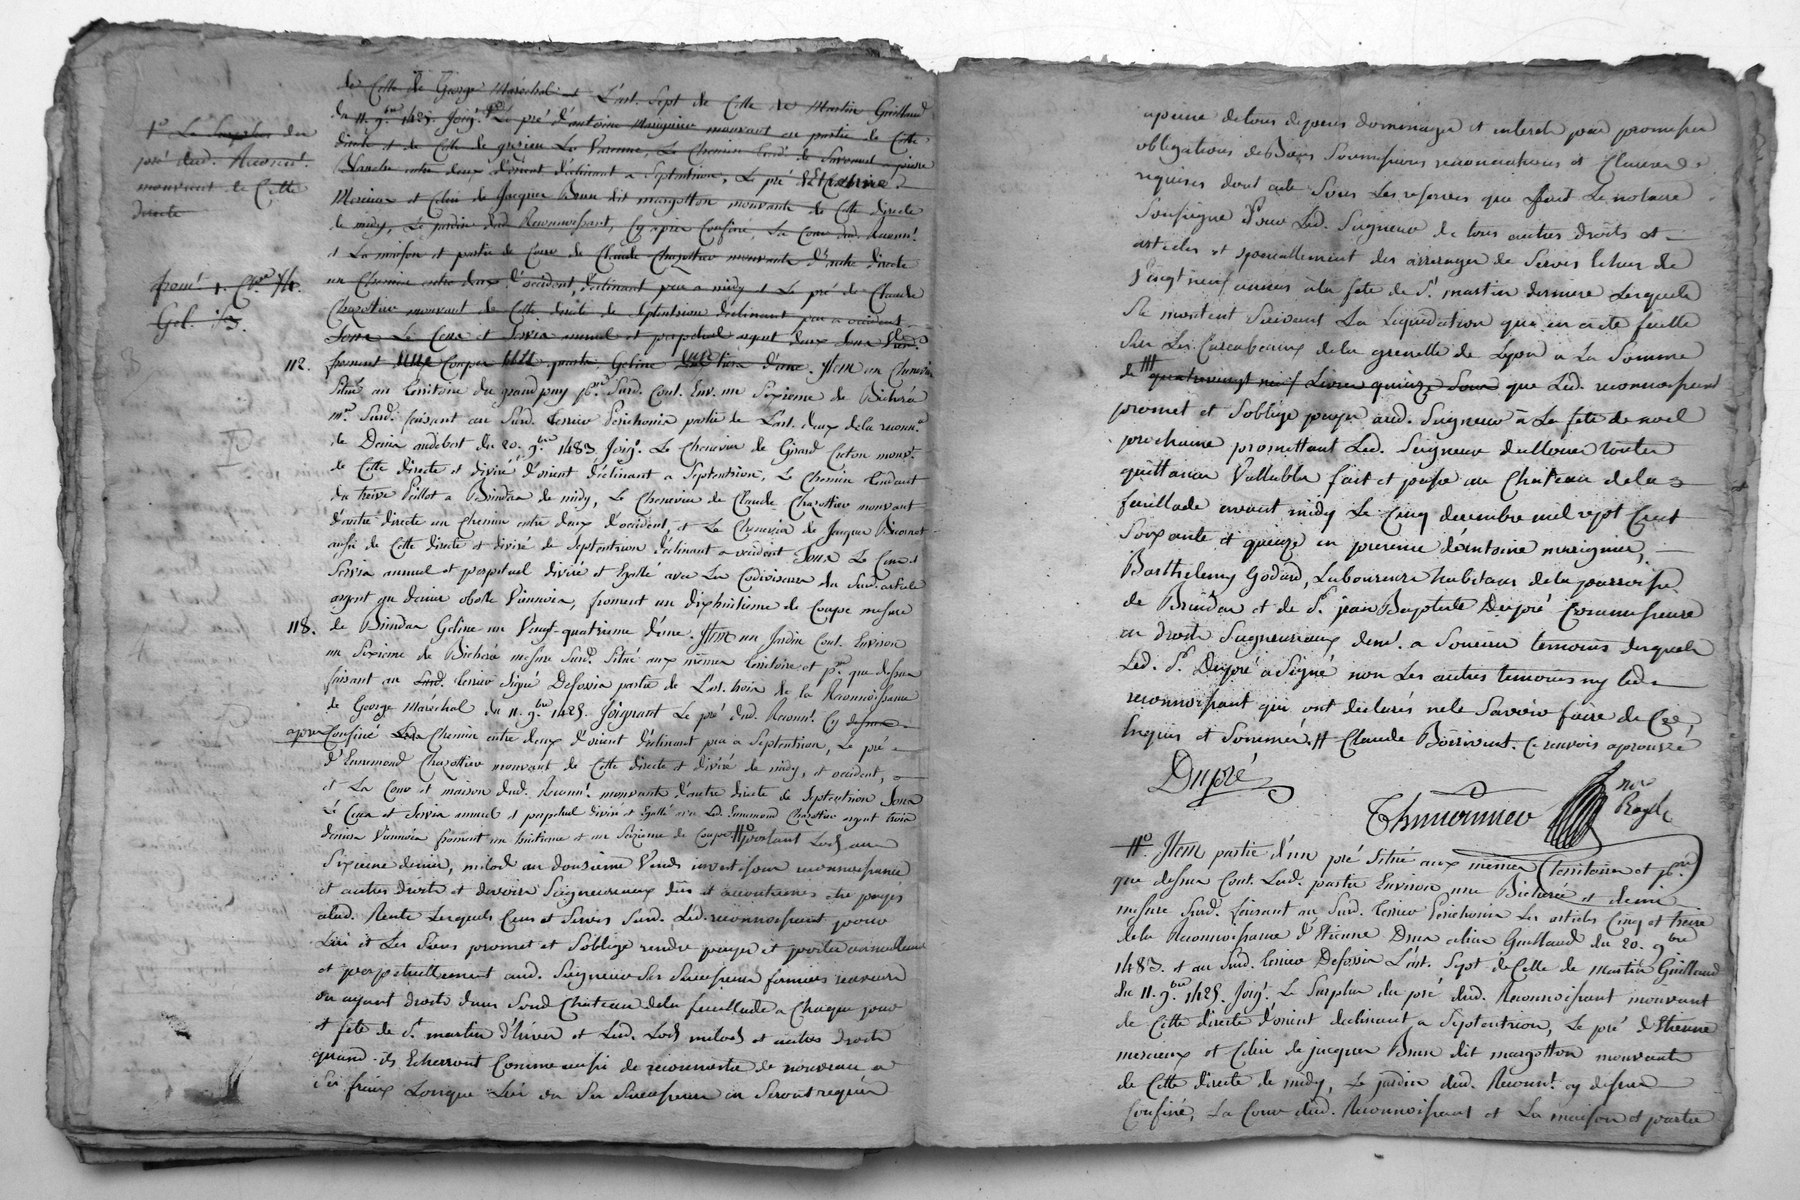 de Celle de George Maréchal et L'art. Sept de Celle de Martin Guilland
du 11. 9.bre 1425. Joig.t Le pré d'antoine Marignier mouvant en partie de Cette
directe et de Celle de Le Varenne, Le Chemin tend.t de a pierre
Blanche entre deux d'orient déclinant a Septentrion, Le pré d'Etienne
Mercieux et Celui de Jacques Brun dit margotton mouvants de Cette directe
de midy, Le jardin dud. Reconnoissant, Cy après Confiné, La Cour dud. Reconn.t
et La maison et partie de Cour de Claude Chazottier mouvants d'autre directe
un Chemin entre deux d'occident, déclinant peu a midy et Le pré de Claude
Chazottier mouvant de Cette directe de Septentrion déclinant peu a occident
Sous Le Cens et Servis annuel et perpetuel argent deux sous
froment Coupes quarts, Geline tiers d'une. Item un Chenevier
1.o Le Surplus du
pré dud. Reconn.t
mouvant de Cette
directe
from.t 1. C.pe 3/4.
Gel. 1/3.
112.
Situé au territoire du grand puy p.sse Surd. Cont. Env. un Sixieme de Bicherée
m.re Surd. faisant au Surd. terrier Perichonis partie de L'art. deux de la reconn.ce
de Denis audebert du 20. 9.bre 1483. Joig.t Le Chenevier de Girard Creton mouv.t
de Cette directe et divisé d'orient déclinant a Septentrion, Le Chemin tendant
du treive Pillot a Brindas de midy, Le Chenevier de Claude Chazottier mouvant
d'autre directe un Chemin entre deux d'occident, et Le Chenevier de Jacques
aussi de Cette directe et divisé de Septentrion déclinant a occident Sous Le Cens et
Servis annuel et perpetuel divisé et Egallé avec Les Codiviseurs du Surd. article
argent un denier obole Viennois, froment un dixhuitieme de Coupe mesure
118.
de Brindas Geline un Vingt-quatrieme d'une. Item un Jardin Cont. Environ
un Sixieme de Bicherée mesure Surd. Situé aux mêmes territoire et p.sse que dessus
faisant au Surd. terrier Signé Defossis partie de L'art. trois de la Reconnoissance
de George Maréchal du 11. 9.bre 1425. Joignant Le pré dud. Reconn.t Cy dessus
après Confiné Chemin entre deux d'orient déclinant peu a Septentrion, Le pré
d'Ennemond Chazottier mouvant de Cette directe et divisé de midy, et occident,
et La Cour et maison dud. Reconn.t mouvants d'autre directe de Septentrion Sous
Le Cens et Servis annuel et perpetuel divisé et Egallé avec Led. Ennemond Chazottier argent trois
deniers Viennois froment un huitieme et un Seizieme de Coupe portant Lods au
Sixieme denier, milods au douzieme Vends investison reconnoissance
et autres Droits et devoirs Seigneuriaux dus et accoutumés être payés
alad. Rente Lesquels Cens et Servis Surd. Led. reconnoissant pour
Lui et Les Siens promet et S'oblige rendre payer et porter annuellement
et perpetuellement aud. Seigneur Ses Successeurs fermiers receveurs
ou ayant droits dans Sond Chateau dela feuillade a Chaque jour
et fête de S.t martin d'hiver et Led. Lods milods et autres droits
quand ils Echerront Comme aussi de reconnoitre de nouveau a
Ses fraix Lorsque Lui ou Ses Successeurs en Seront requis
apeine detous depens dommages et interets par promesses
obligations de Biens Soumissions renonciations et Clauses
requises dont acte Sous Les reserves que fait Le notaire
Soussigné Pour Led. Seigneur de tous autres droits et
articles et specialement des arrerages de Servis Echus de
Vingt neuf années a la fete de S.t martin derniere Lesquels
Se montent Suivant La Liquidation que en a été faitte
Sur Les Carcabeaux dela grenette de Lyon a La Somme
de quatrevingt neuf Livres quinze Sous que Led. reconnoissant
promet et S'oblige payer aud. Seigneur à La fete de noel
prochaine promettant Led. Seigneur dallouer toutes
quittances Vallables fait et passé au Chateau dela
feuillade avant midy Le Cinq decembre mil sept Cent
Soixante et quinze en presence d'Antoine marignier,
Barthelemy Godard, Laboureurs habitans dela parroisse
de Brindas et de S.r jean Baptiste Dupré Commissaire
en droits Seigneuriaux dem.t a temoins desquels
Led. S.r Dupré a Signé non Les autres temoins ny Led.
reconnoissant qui ont declarés nele Savoir faire de Ce,
Enquis et Sommés. # Claude Ce renvois aprouvé
Dupré
n.re
Royl
#.o Item partie d'un pré Situé aux mêmes (territoire et p.sse)
que dessus Cont. Lad. partie Environ une Bicherée et demie
mesure Surd. faisant au Surd. terrier Perichonis Les articles Cinq et treize
dela Reconnoissance d'Etienne Dra alias Guilland du 20. 9.bre
1483. et au Surd. terrier Defossis L'art. Sept de Celle de Martin Guilland
du 11. 9.bre 1425. Joig.t Le Surplus du pré dud. Reconnoissant mouvant
de Cette directe d'orient declinant a Septentrion, Le pré d'Etienne
mercieux et Celui de jacques Brun dit margotton mouvants
de Cette directe de midy, Le jardin dud. Reconn.t cy dessus
Confiné, La Cour dud. Reconnoissant et La maison et partie